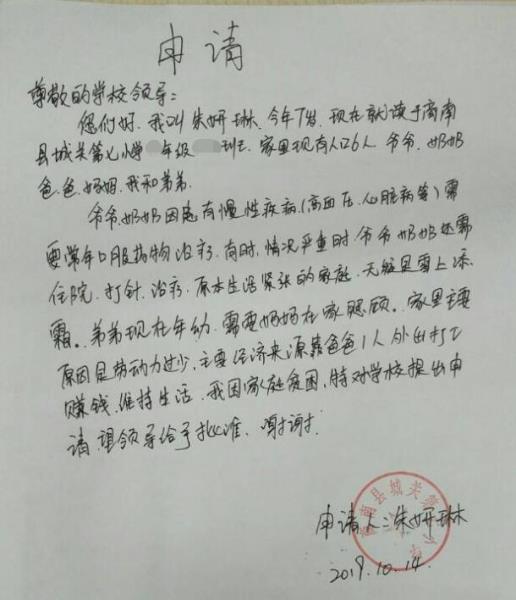 申请
尊敬的学校领导:
您们好.我叫朱妍琳.今年7岁.现在就读于商南
县城关第七小学 年级 班.家里现有人口6人.爷爷.奶奶
爸.爸.妈妈.我和弟弟.
爷爷.奶奶因患有慢性疾病.(高血压.心脏病等)需
要常年口服药物治疗.有时.情况严重时.爷爷奶奶还需
住院.打针.治疗.原本生活紧张的家庭.无疑是雪上添
霜。弟弟现在年幼.需要妈妈在家照顾。家里主要
原因是劳动力过少.主要经济来源靠爸爸1人外出打工
赚钱.维持生活.我因家庭贫困,特对学校提出申
请.望领导给予批准.谢谢.
申请人:朱妍琳
2019.10.14.
南县城关第